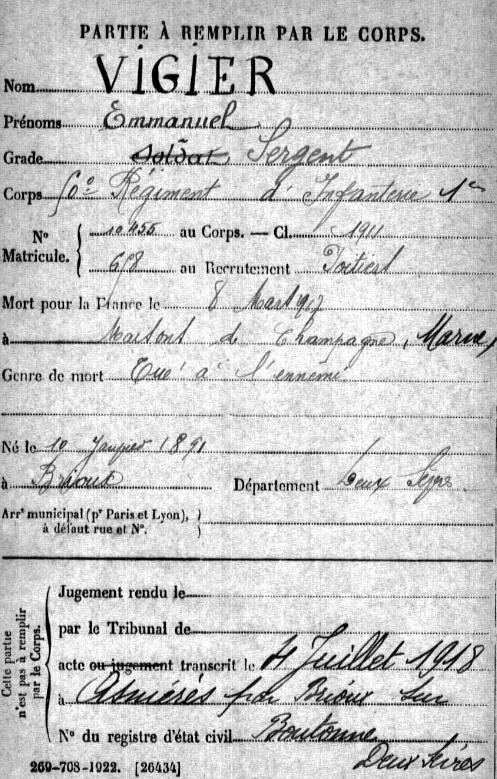 PARTIE À REMPLIR PAR LE CORPS.
Nom VIGIER
Prénoms Emmanuel
Grade Soldat Sergent
Corps Régiment d'Infanterie
N° Matricule. 10455 au Corps. — Cl. 1911
678 au Recrutement Poitiers
Mort pour la France le 8 Mars 1917
à Maisons de Champagne, Marne
Genre de mort Tué à l'ennemi
Né le 10 Janvier 1891
à Brioux Département Deux Sèvres
Arrt municipal (pr Paris et Lyon),
à défaut rue et N°.
Cette partie n'est pas à remplir par le Corps.
Jugement rendu le
par le Tribunal de
acte ou jugement transcrit le 4 Juillet 1918
à Asnières par Brioux sur
N° du registre d'état civil Boutonne
Deux Sèvres
269-708-1922. [26434]